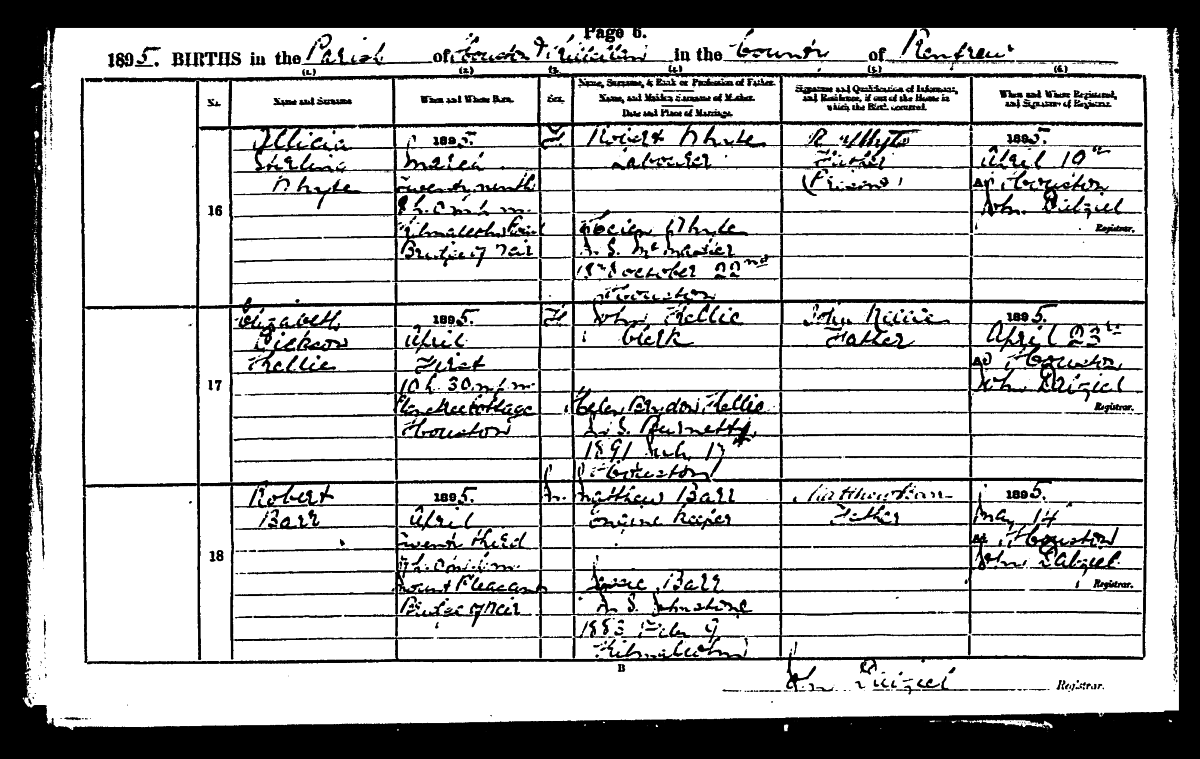 Page 6.
1895. BIRTHS in the Parish of Houston & Killellan in the County of Renfrew
(1.) (2.) (3.) (4.) (5.) (6.)
No.
Name and Surname
When and Where Born.
Sex.
Name, Surname, & Rank or Profession of Father.
Name, and Maiden Surname of Mother.
Date and Place of Marriage.
Signature and Qualification of Informant,
and Residence, if out of the House in
which the Birth occurred.
When and Where Registered,
and Signature of Registrar.
16
Sterling
Whyte
1895
March
Twenty ninth
Bridge of Weir
F.
Robert Whyte
Labourer
Whyte
M.S.
October 22nd
Houston
R Whyte
Father
1895.
April 19th
At Houston
John Dalziel
Registrar.
17
Elizabeth
Dickson
Kellie
1895.
April
First
10 h. 30 m. p.m.
Cottage
Houston
F.
John Kellie
Clerk
Helen Brydon Kellie
M.S. Burnett
1891 July 17
Houston
John Kellie
Father
1895.
April 23rd
At Houston
John Dalziel
Registrar.
18
Robert
Barr
1895.
April
Twenty third
Mount Pleasant
Bridge of Weir
M.
Matthew Barr
Engine Keeper
Barr
M.S. Johnstone
1883
Kilmalcolm
Matthew Barr
Father
1895.
May 14
At Houston
John Dalziel
Registrar.
B
John Dalziel Registrar.